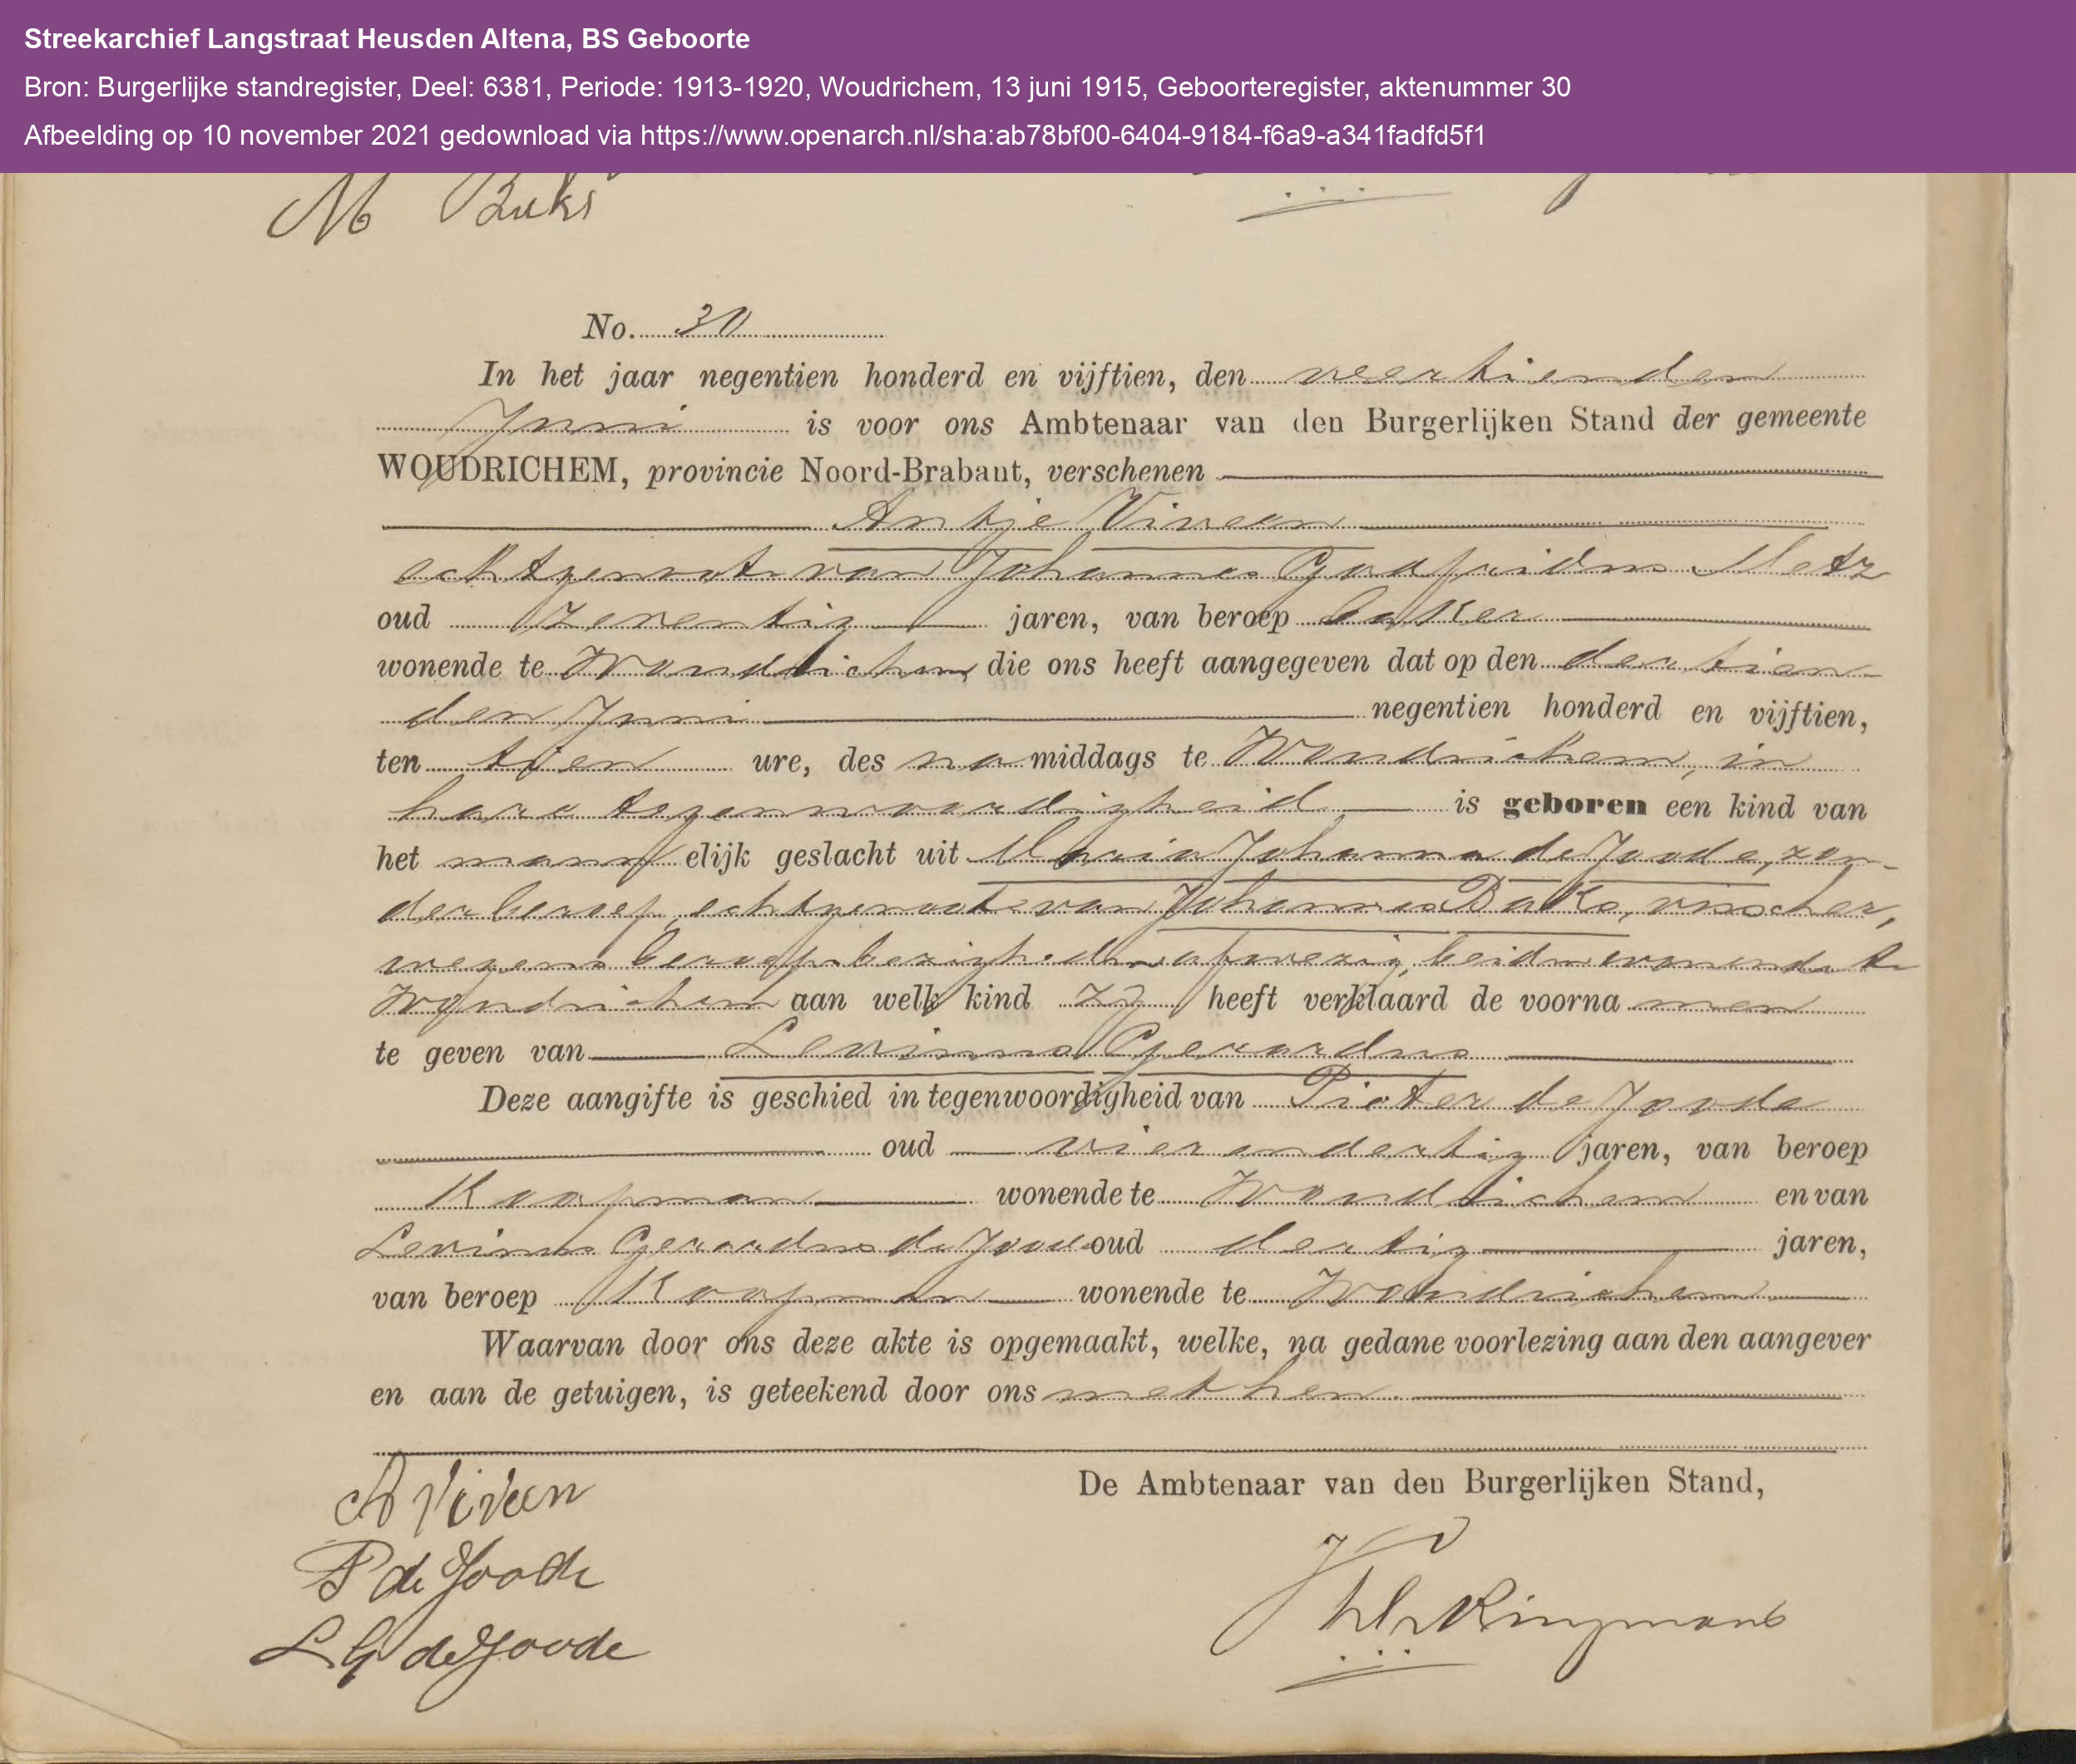 Streekarchief Langstraat Heusden Altena, BS Geboorte
Bron: Burgerlijke standregister, Deel: 6381, Periode: 1913-1920, Woudrichem, 13 juni 1915, Geboorteregister, aktenummer 30
Afbeelding op 10 november 2021 gedownload via https://www.openarch.nl/sha:ab78bf00-6404-9184-f6a9-a341fadfd5f1
M
No. 30
In het jaar negentien honderd en vijftien, den veertienden
Juni is voor ons Ambtenaar van den Burgerlijken Stand der gemeente
WOUDRICHEM, provincie Noord-Brabant, verschenen
Antje Viveen
echtgenoote van Johannes Godfridus Metz
oud zeventig jaren, van beroep baker
wonende te Woudrichem, die ons heeft aangegeven dat op den dertien
den Juni negentien honderd en vijftien,
ten tien ure, des na middags te Woudrichem, in
hare tegenwoordigheid is geboren een kind van
het mann elijk geslacht uit Maria Johanna de Joode, zon-
der beroep, echtgenoote van Johannes Baks, visscher,
wegens beroepsbezigheden afwezig, beiden wonende te
Woudrichem aan welk kind zij heeft verklaard de voorna men
te geven van Levinus Gerardus
Deze aangifte is geschied in tegenwoordigheid van Pieter de Joode
oud vierendertig jaren, van beroep
Koopman wonende te Woudrichem en van
Levinus Gerardus de Joode oud dertig jaren,
van beroep Koopman wonende te Woudrichem
Waarvan door ons deze akte is opgemaakt, welke, na gedane voorlezing aan den aangever
en aan de getuigen, is geteekend door ons met hen.
De Ambtenaar van den Burgerlijken Stand,
A Viveen
P de Joode
L G de Joode